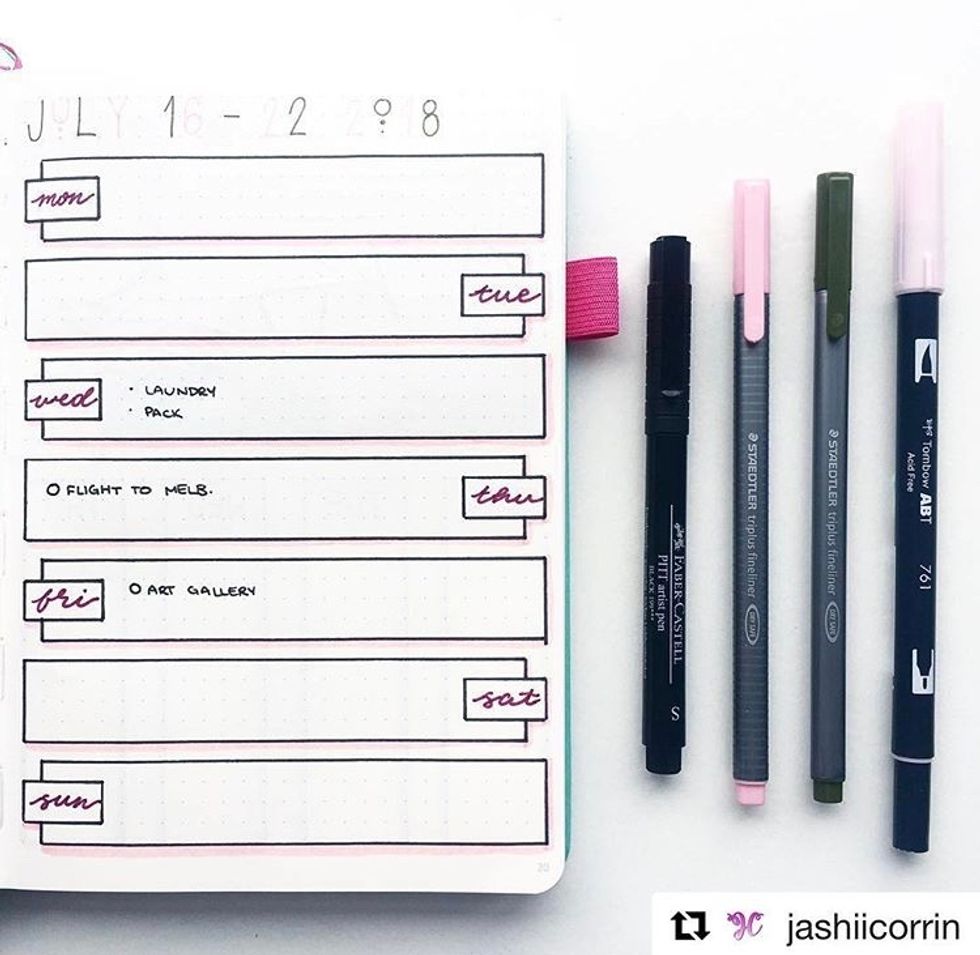 JULY 16 - 22 2018
mon
tue
wed
· LAUNDRY
· PACK
thu
O FLIGHT TO MELB.
fri
O ART GALLERY
sat
sun
20
FABER-CASTELL
PITT artist pen
S
STAEDTLER triplus fineliner
DRY SAFE
STAEDTLER triplus fineliner
DRY SAFE
Tombow ABT 761
Acid Free
jashiicorrin